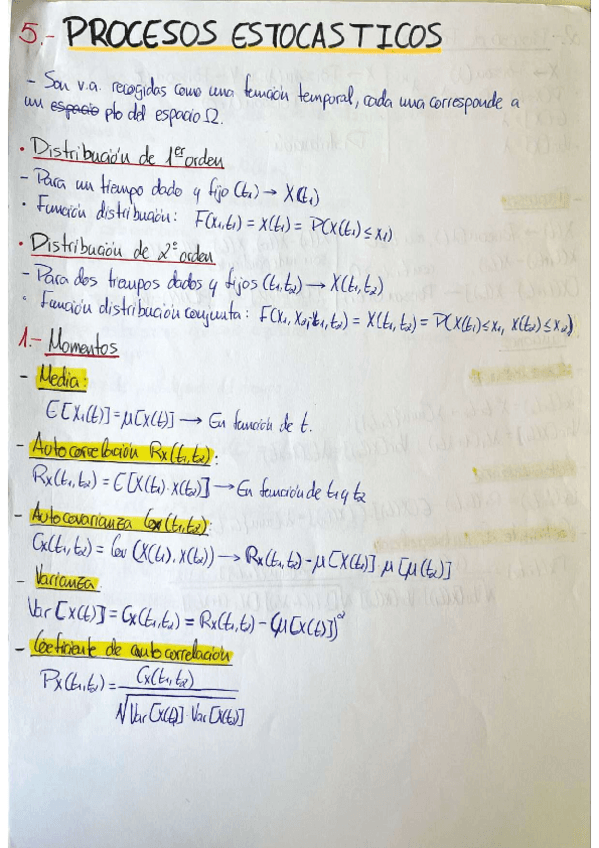 5.- PROCESOS ESTOCASTICOS
- Son v.a. recogidas como una función temporal, cada una corresponde a
un espacio pto del espacio Ω.
• Distribución de 1er orden
- Para un tiempo dado y fijo (t₁) → X(t₁)
• Función distribución: F(x₁,t₁) = X(t₁) = P(X(t₁) ≤ x₁)
• Distribución de 2º orden
- Para dos tiempos dados y fijos (t₁,t₂) → X(t₁,t₂)
• Función distribución conjunta: F(x₁,x₂;t₁,t₂) = X(t₁,t₂) = P(X(t₁) ≤ x₁, X(t₂) ≤ x₂)
1.- Momentos
- Media:
E[X₁(t)] = μ[X(t)] → En función de t.
- Autocorrelación Rx(t₁,t₂):
Rx(t₁,t₂) = E[X(t₁)·X(t₂)] → En función de t₁ y t₂
- Autocovarianza Cx(t₁,t₂):
Cx(t₁,t₂) = Cov (X(t₁), X(t₂)) → Rx(t₁,t₂) - μ[X(t₁)]·μ[μ(t₂)]
- Varianza
Var[X(t)] = Cx(t₁,t₂) = Rx(t₁,t₂) - (μ[X(t)])²
- Coeficiente de autocorrelación
Px(t₁,t₂) = Cx(t₁,t₂)
√Var[X(t₁)]·Var[X(t₂)]